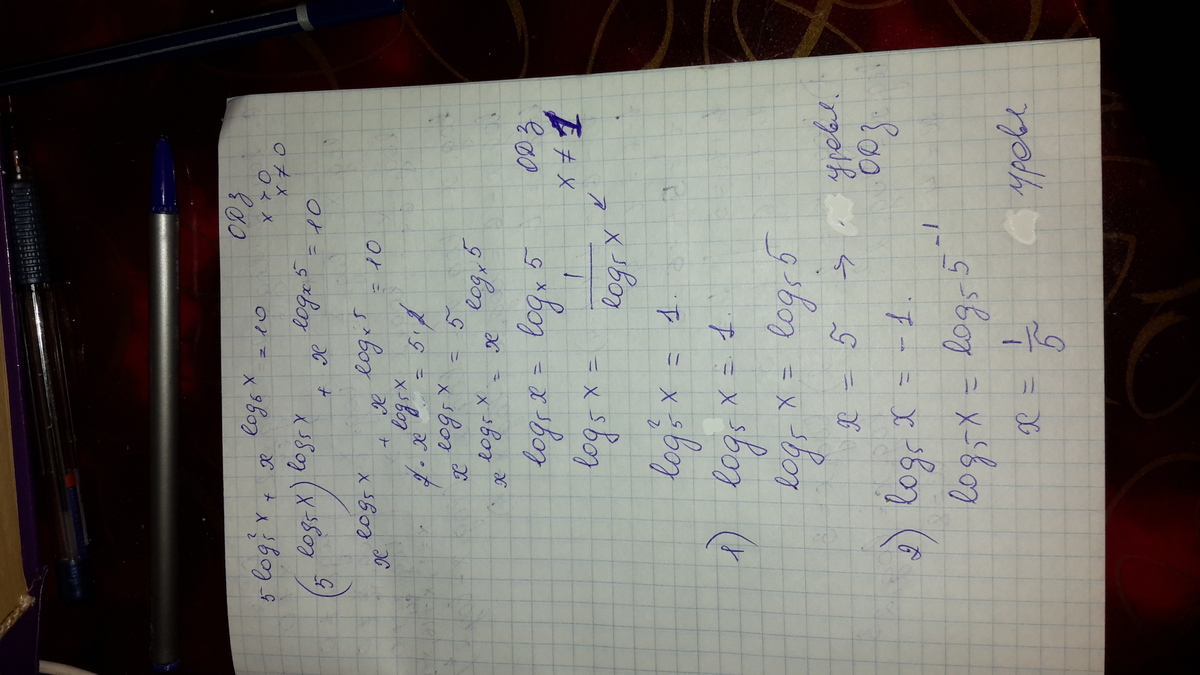 ОДЗ
5^{log₅²x} + x^{log₅x} = 10
x > 0
x ≠ 0
(5^{log₅x})^{log₅x} + x^{logₓ5} = 10
x^{log₅x} + x^{logₓ5} = 10
2·x^{log₅x} = 5·2
x^{log₅x} = 5
x^{log₅x} = x^{logₓ5}
ОДЗ
log₅x = logₓ5
x ≠ 1
log₅x = 1/log₅x ↙
log₅²x = 1.
1) log₅x = 1.
log₅x = log₅5
x = 5 → уровл. ОДЗ.
2) log₅x = -1.
log₅x = log₅5⁻¹
x = 1/5 уровл